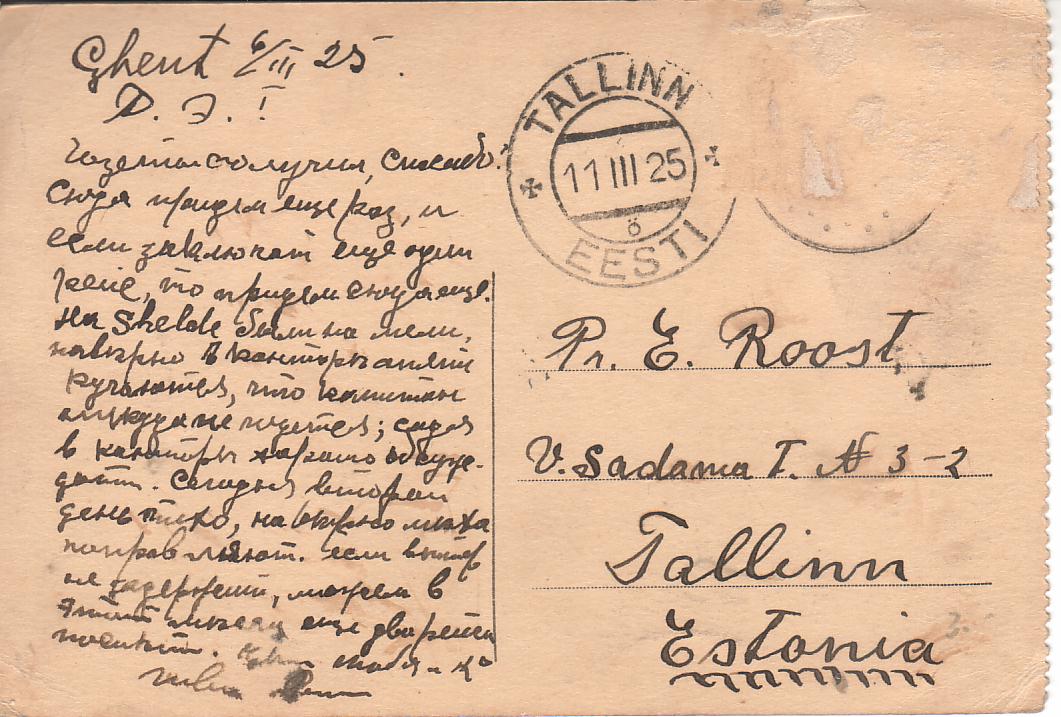 Ghent 6/III 25.
Д. Э. !
Газеты получил, спасибо.
Сюда придем еще раз, и
если заключат еще один
рейс, то придем сюда еще.
На Shelde были на мели,
наверно в конторѣ опять
ругаются, что капитан
никуда не годится; сидя
в конторѣ хорошо обсуж-
дать. Сегодня второй
день тихо, наверно
поправляют. если вѣтер
не задержит, можем в
этом еще два рейса
TALLINN
11 III 25
ö
EESTI
Pr. E. Roost
V. Sadama T. № 3-2
Tallinn
Estonia